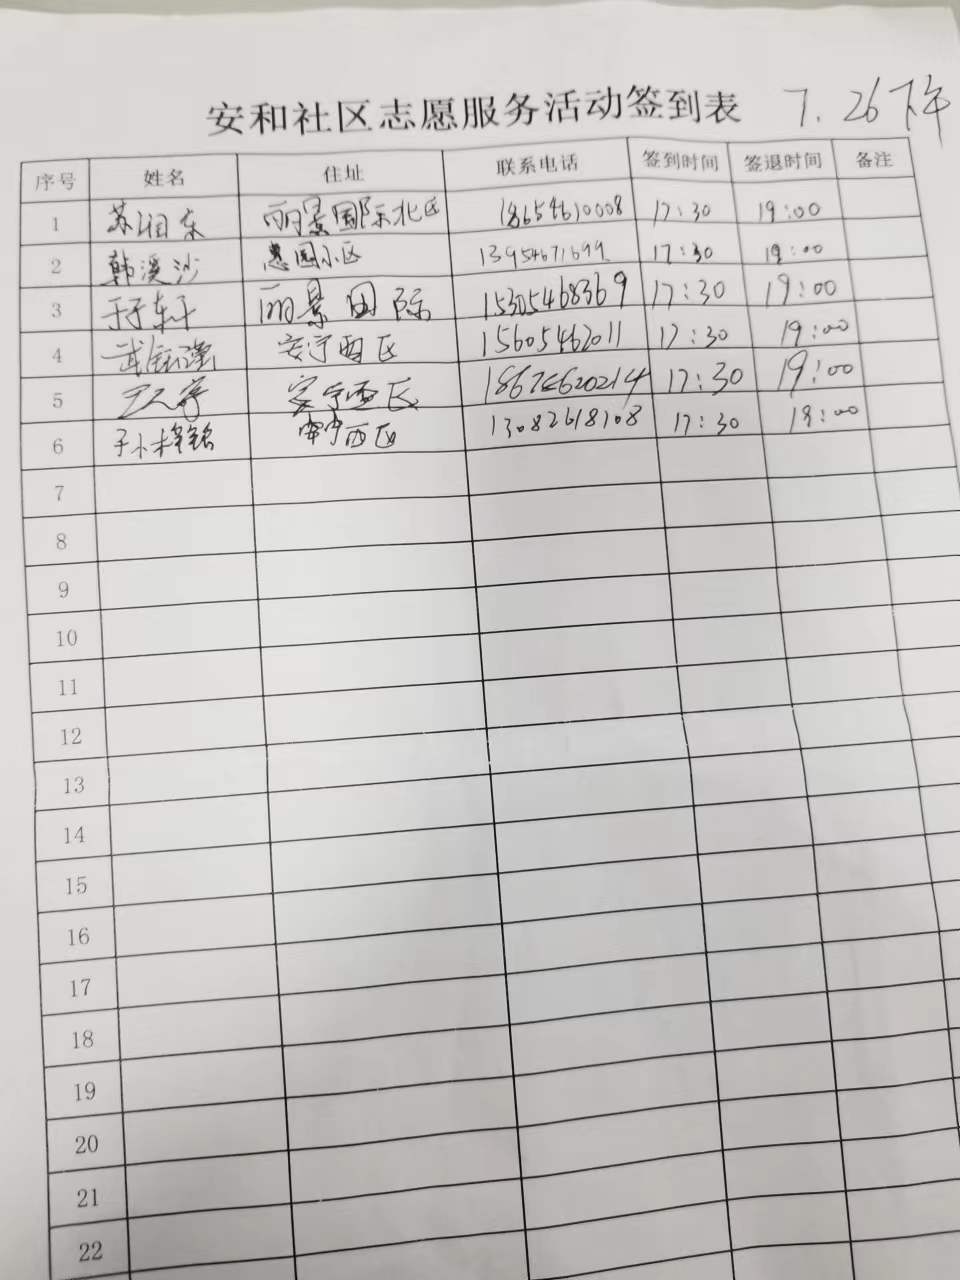 安和社区志愿服务活动签到表 7.26下午
序号 姓名 住址 联系电话 签到时间 签退时间 备注
1 苏湘东 丽景国际北区 18654610008 17:30 19:00
2 韩溪沙 惠园小区 13954671699 17:30 19:00
3 丽景国际 15305468369 17:30 19:00
4 安宁西区 15605462011 17:30 19:00
5 安宁西区 17:30 19:00
6 西区 13082618108 17:30 19:00
7
8
9
10
11
12
13
14
15
16
17
18
19
20
21
22